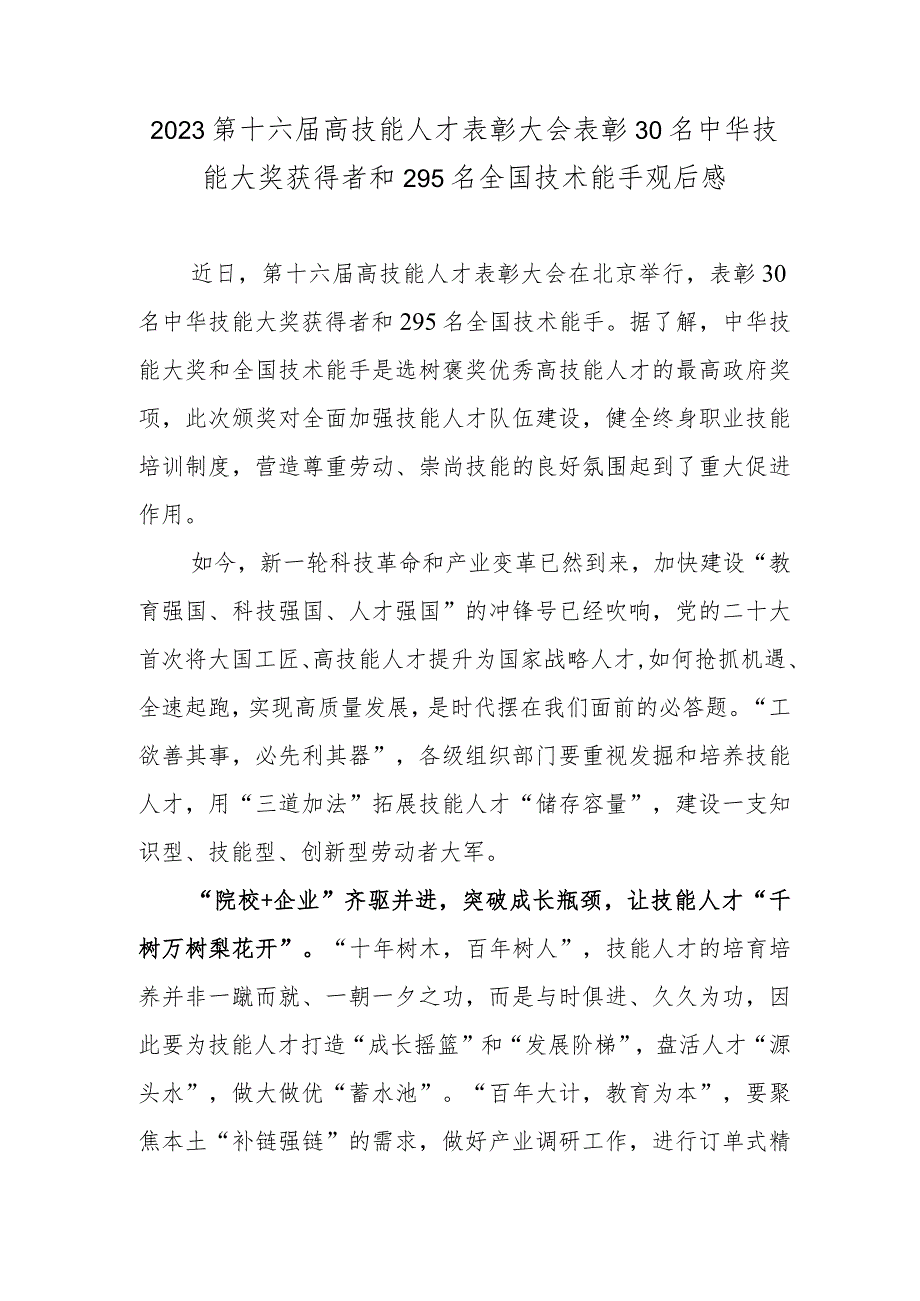 2023第十六届高技能人才表彰大会表彰30名中华技
能大奖获得者和295名全国技术能手观后感
近日，第十六届高技能人才表彰大会在北京举行，表彰30
名中华技能大奖获得者和295名全国技术能手。据了解，中华技
能大奖和全国技术能手是选树褒奖优秀高技能人才的最高政府奖
项，此次颁奖对全面加强技能人才队伍建设，健全终身职业技能
培训制度，营造尊重劳动、崇尚技能的良好氛围起到了重大促进
作用。
如今，新一轮科技革命和产业变革已然到来，加快建设“教
育强国、科技强国、人才强国”的冲锋号已经吹响，党的二十大
首次将大国工匠、高技能人才提升为国家战略人才,如何抢抓机遇、
全速起跑，实现高质量发展，是时代摆在我们面前的必答题。“工
欲善其事，必先利其器”，各级组织部门要重视发掘和培养技能
人才，用“三道加法”拓展技能人才“储存容量”，建设一支知
识型、技能型、创新型劳动者大军。
“院校+企业”齐驱并进，突破成长瓶颈，让技能人才“千
树万树梨花开”。“十年树木，百年树人”，技能人才的培育培
养并非一蹴而就、一朝一夕之功，而是与时俱进、久久为功，因
此要为技能人才打造“成长摇篮”和“发展阶梯”，盘活人才“源
头水”，做大做优“蓄水池”。“百年大计，教育为本”，要聚
焦本土“补链强链”的需求，做好产业调研工作，进行订单式精